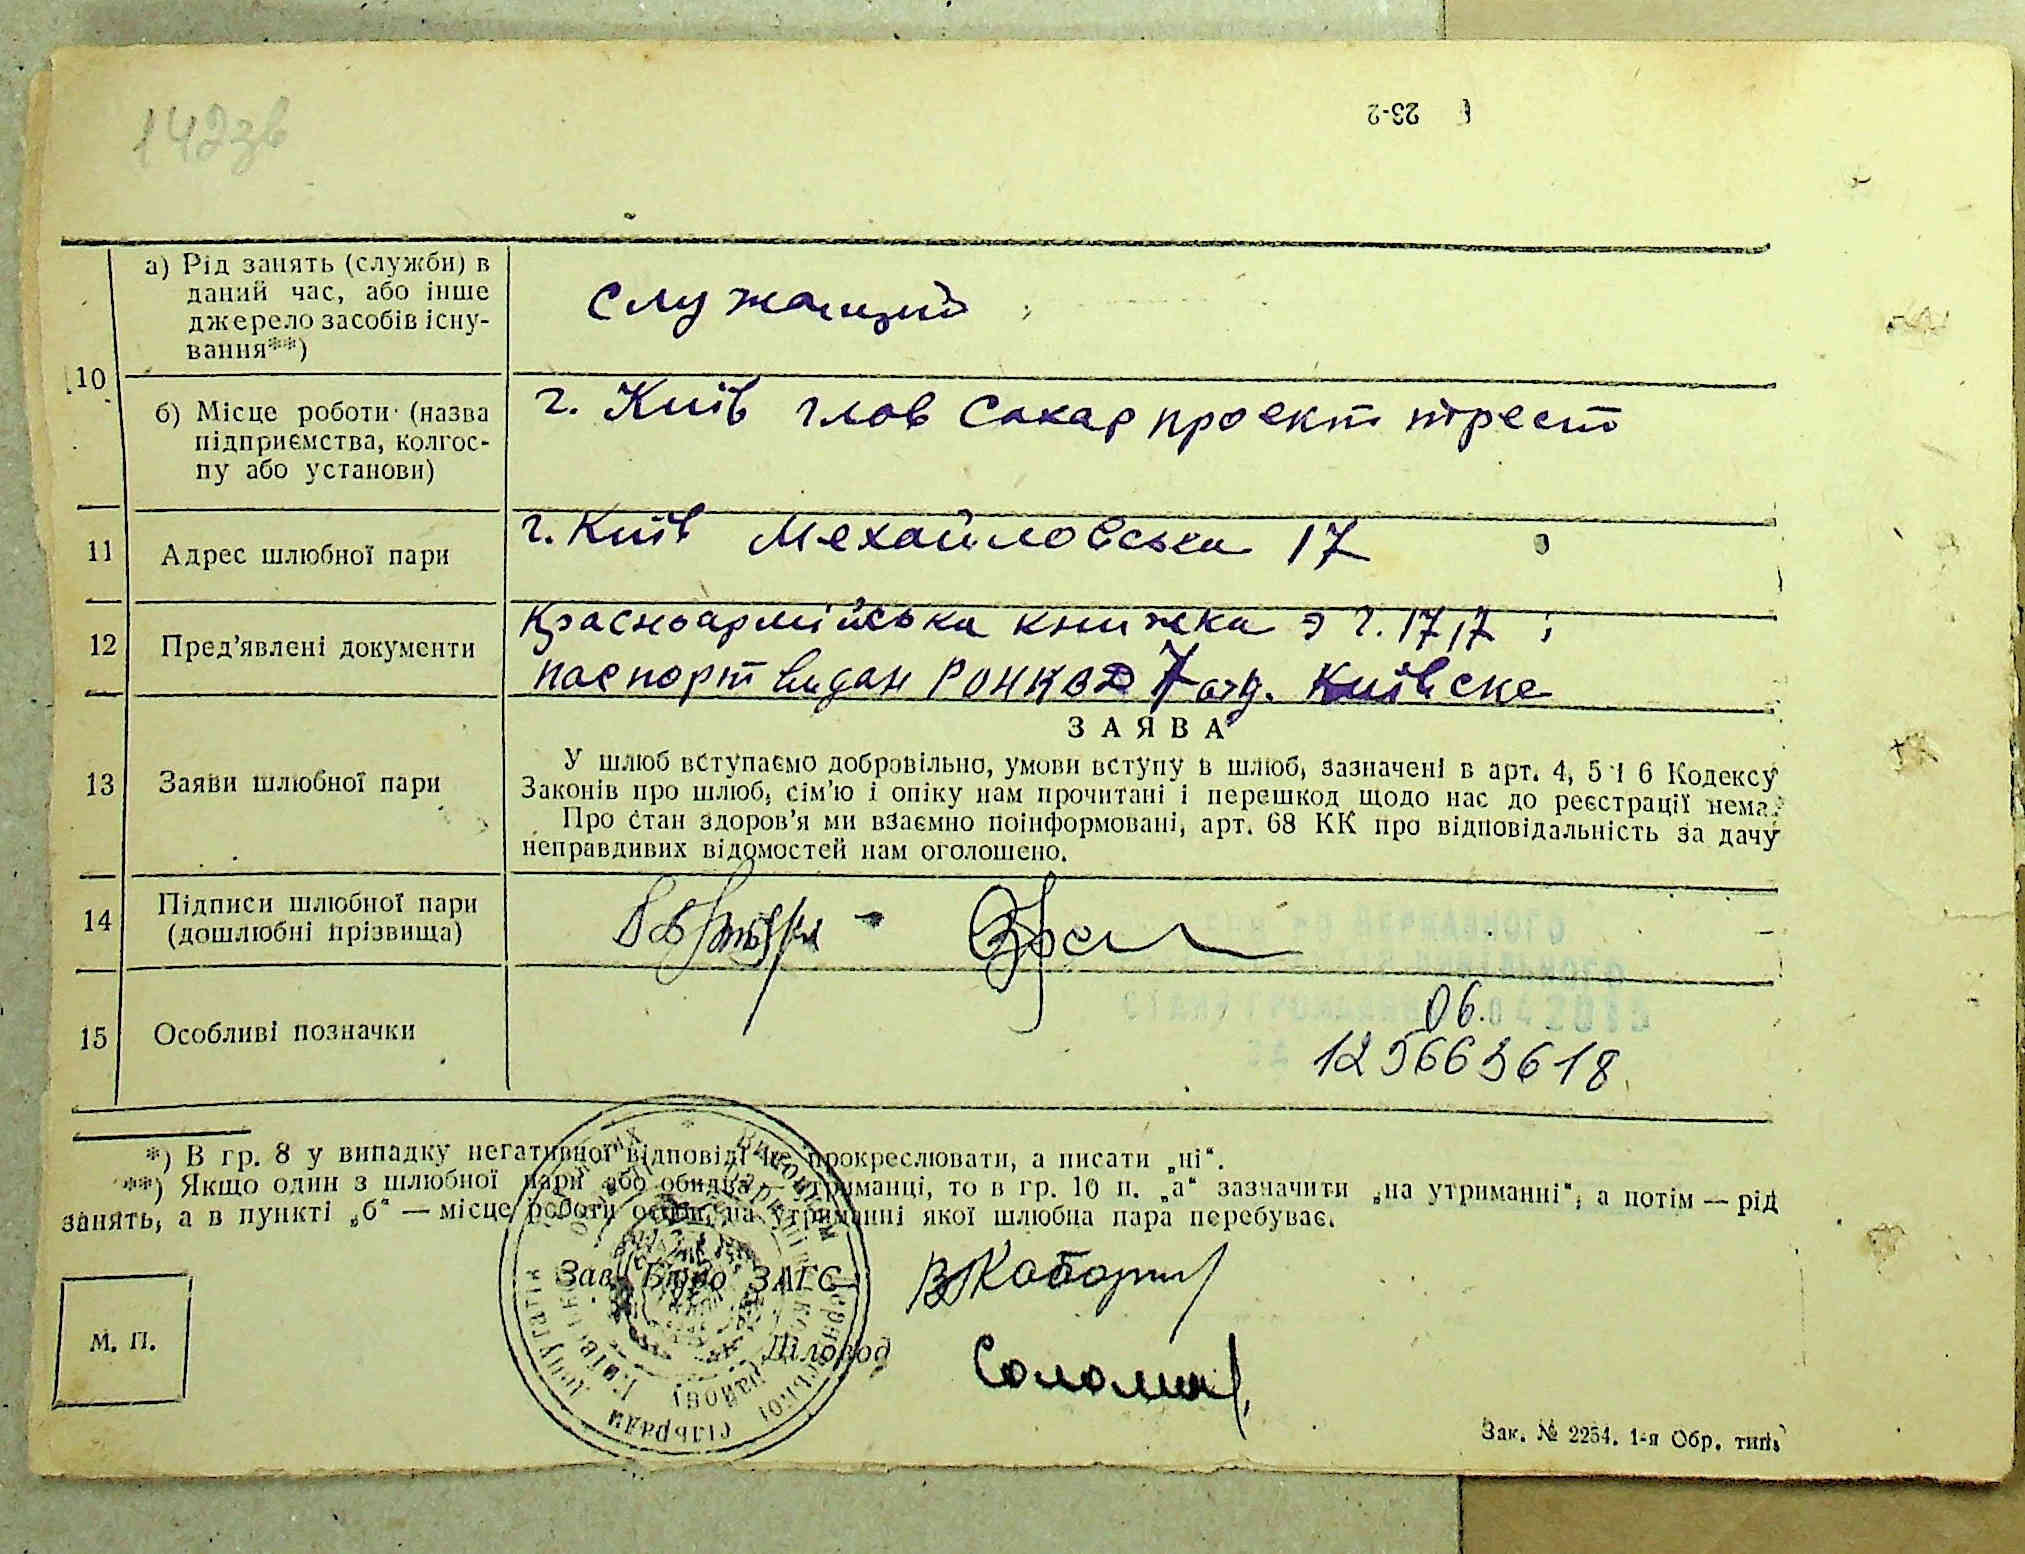 142зв
23-2
10
а) Рід занять (служби) в
даний час, або інше
джерело засобів існу-
вання**)
служащий
б) Місце роботи (назва
підприємства, колгос-
пу або установи)
г. Київ глов Сахар проект трест
11
Адрес шлюбної пари
г. Київ Мехайловська 17
12
Пред'явлені документи
Красноармійська книжка
паспорт видан РОНКВД 7 отд. Київске
13
Заяви шлюбної пари
ЗАЯВА
У шлюб вступаємо добровільно, умови вступу в шлюб, зазначені в арт. 4, 5 і 6 Кодексу
Законів про шлюб, сім'ю і опіку нам прочитані і перешкод щодо нас до реєстрації нема.
Про стан здоров'я ми взаємно поінформовані, арт. 68 КК про відповідальність за дачу
неправдивих відомостей нам оголошено.
14
Підписи шлюбної пари
(дошлюбні прізвища)
15
Особливі позначки
06.04 2015
125663618
*) В гр. 8 у випадку негативної відповіді не прокреслювати, а писати „ні“.
**) Якщо один з шлюбної пари або обидва — утриманці, то в гр. 10 п. „а“ зазначити „на утриманні“, а потім — рід
занять, а в пункті „б“ — місце роботи особи, на утриманні якої шлюбна пара перебуває.
Зав. Бюро ЗАГС
М. П.
Діловод
Зак. № 2254. 1-я Обр. тип.